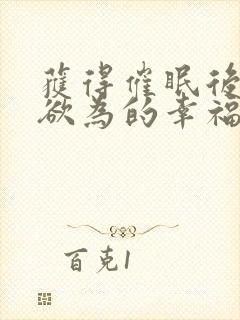 獲得催眠後
欲為的幸福
百克1